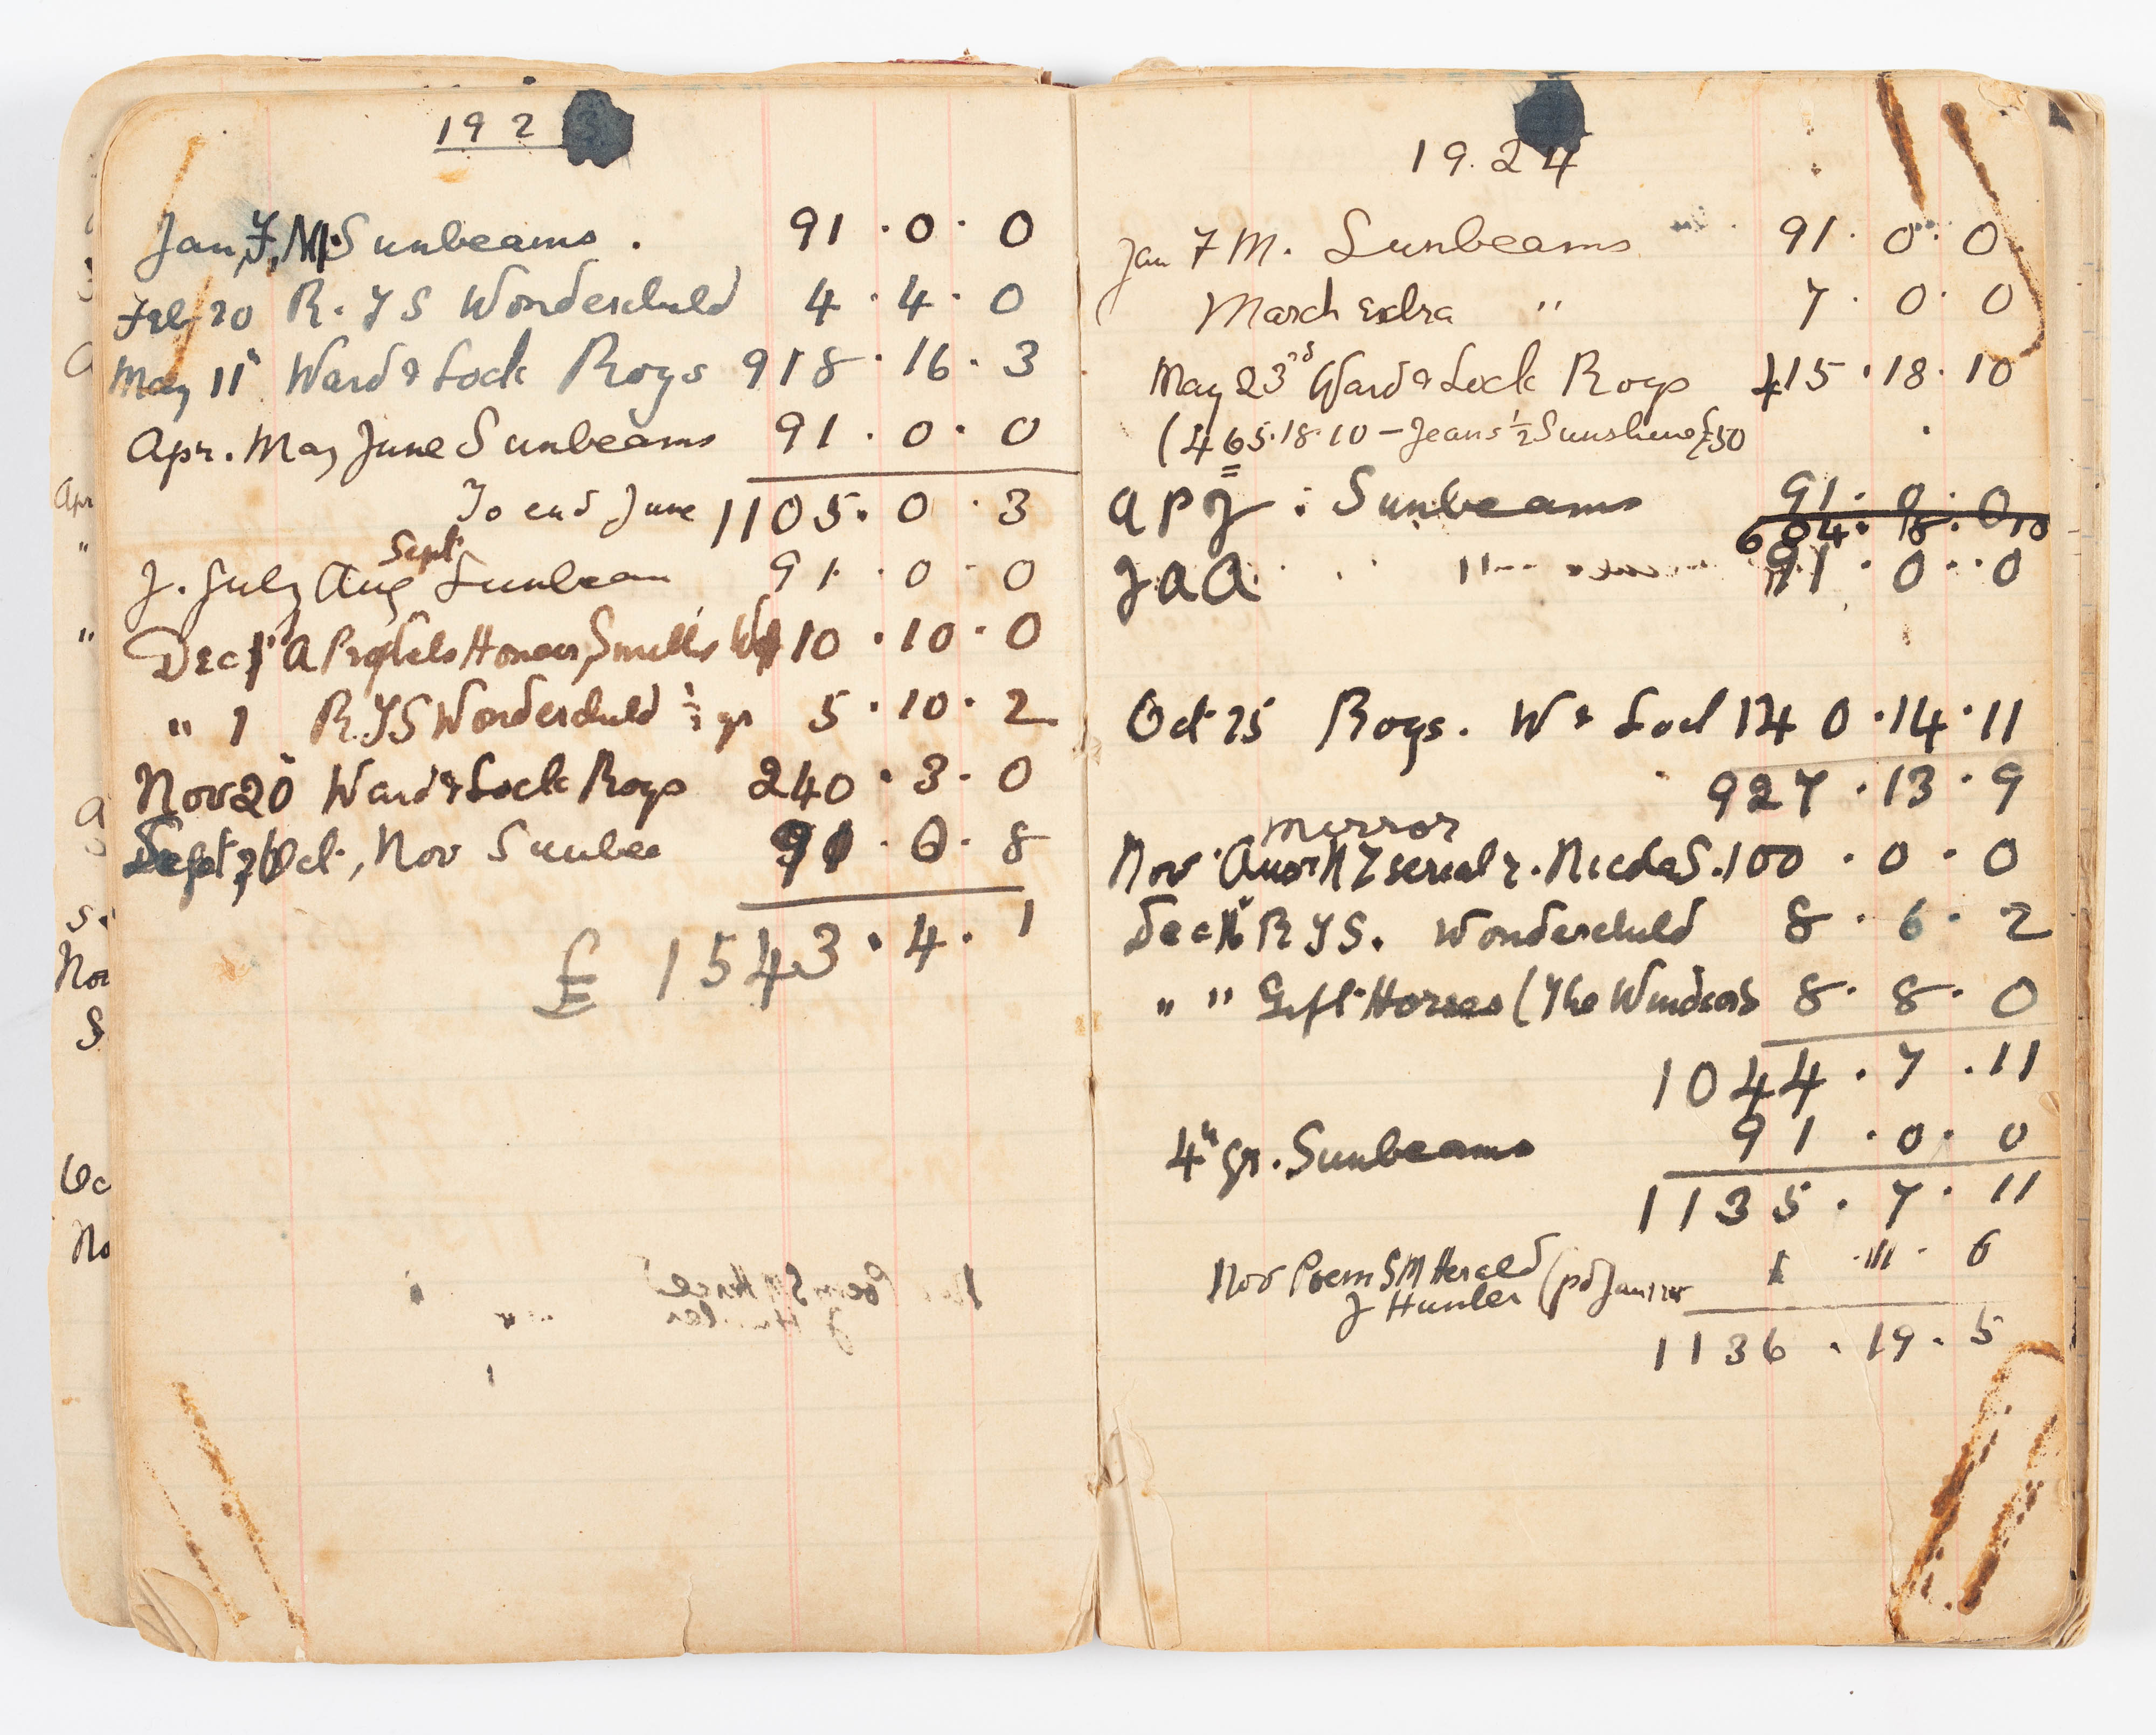 1923
Jan, F, M. Sunbeams . 91 . 0 . 0
Feb 20 R. T S Wonderchild 4 . 4 . 0
May 11 Ward & Lock Roys 918 . 16 . 3
Apr. May June Sunbeams 91 . 0 . 0
To end June 1105 . 0 . 3
Sept
J. July Aug Sunbeam 91 . 0 . 0
Dec 1 A Prophets Honour, Smith's W 10 . 10 . 0
" 1 R.T S Wonderchild ½ yr 5 . 10 . 2
Nov 20 Ward & Lock Roys 240 . 3 . 0
Oct, Nov Sunbea 91 . 0 . 8
£ 1543 . 4 . 1
1924
Jan F M. Sunbeams 91 . 0 . 0
March Extra " 7 . 0 . 0
May 23rd Ward & Lock Roys 415 . 18 . 10
(465.18.10 – Jeans ½ Sunshine £50
A P J : Sunbeams 91 . 0 . 0
604 . 18 . 10
J A A " 91 . 0 . 0
Oct 25 Roys. W & Loc 140 . 14 . 11
927 . 13 . 9
Mirror
Nov Aus N Z serial r. Nicolas . 100 . 0 . 0
Dec 16 R T S. Wonderchild 8 . 6 . 2
" " Gift Horses (The Windsor 8 . 8 . 0
1044 . 7 . 11
4th qr. Sunbeams 91 . 0 . 0
1135 . 7 . 11
Nov Poem S M Herald 1 . 11 . 6
J Hunter (pd Jan
1136 . 19 . 5